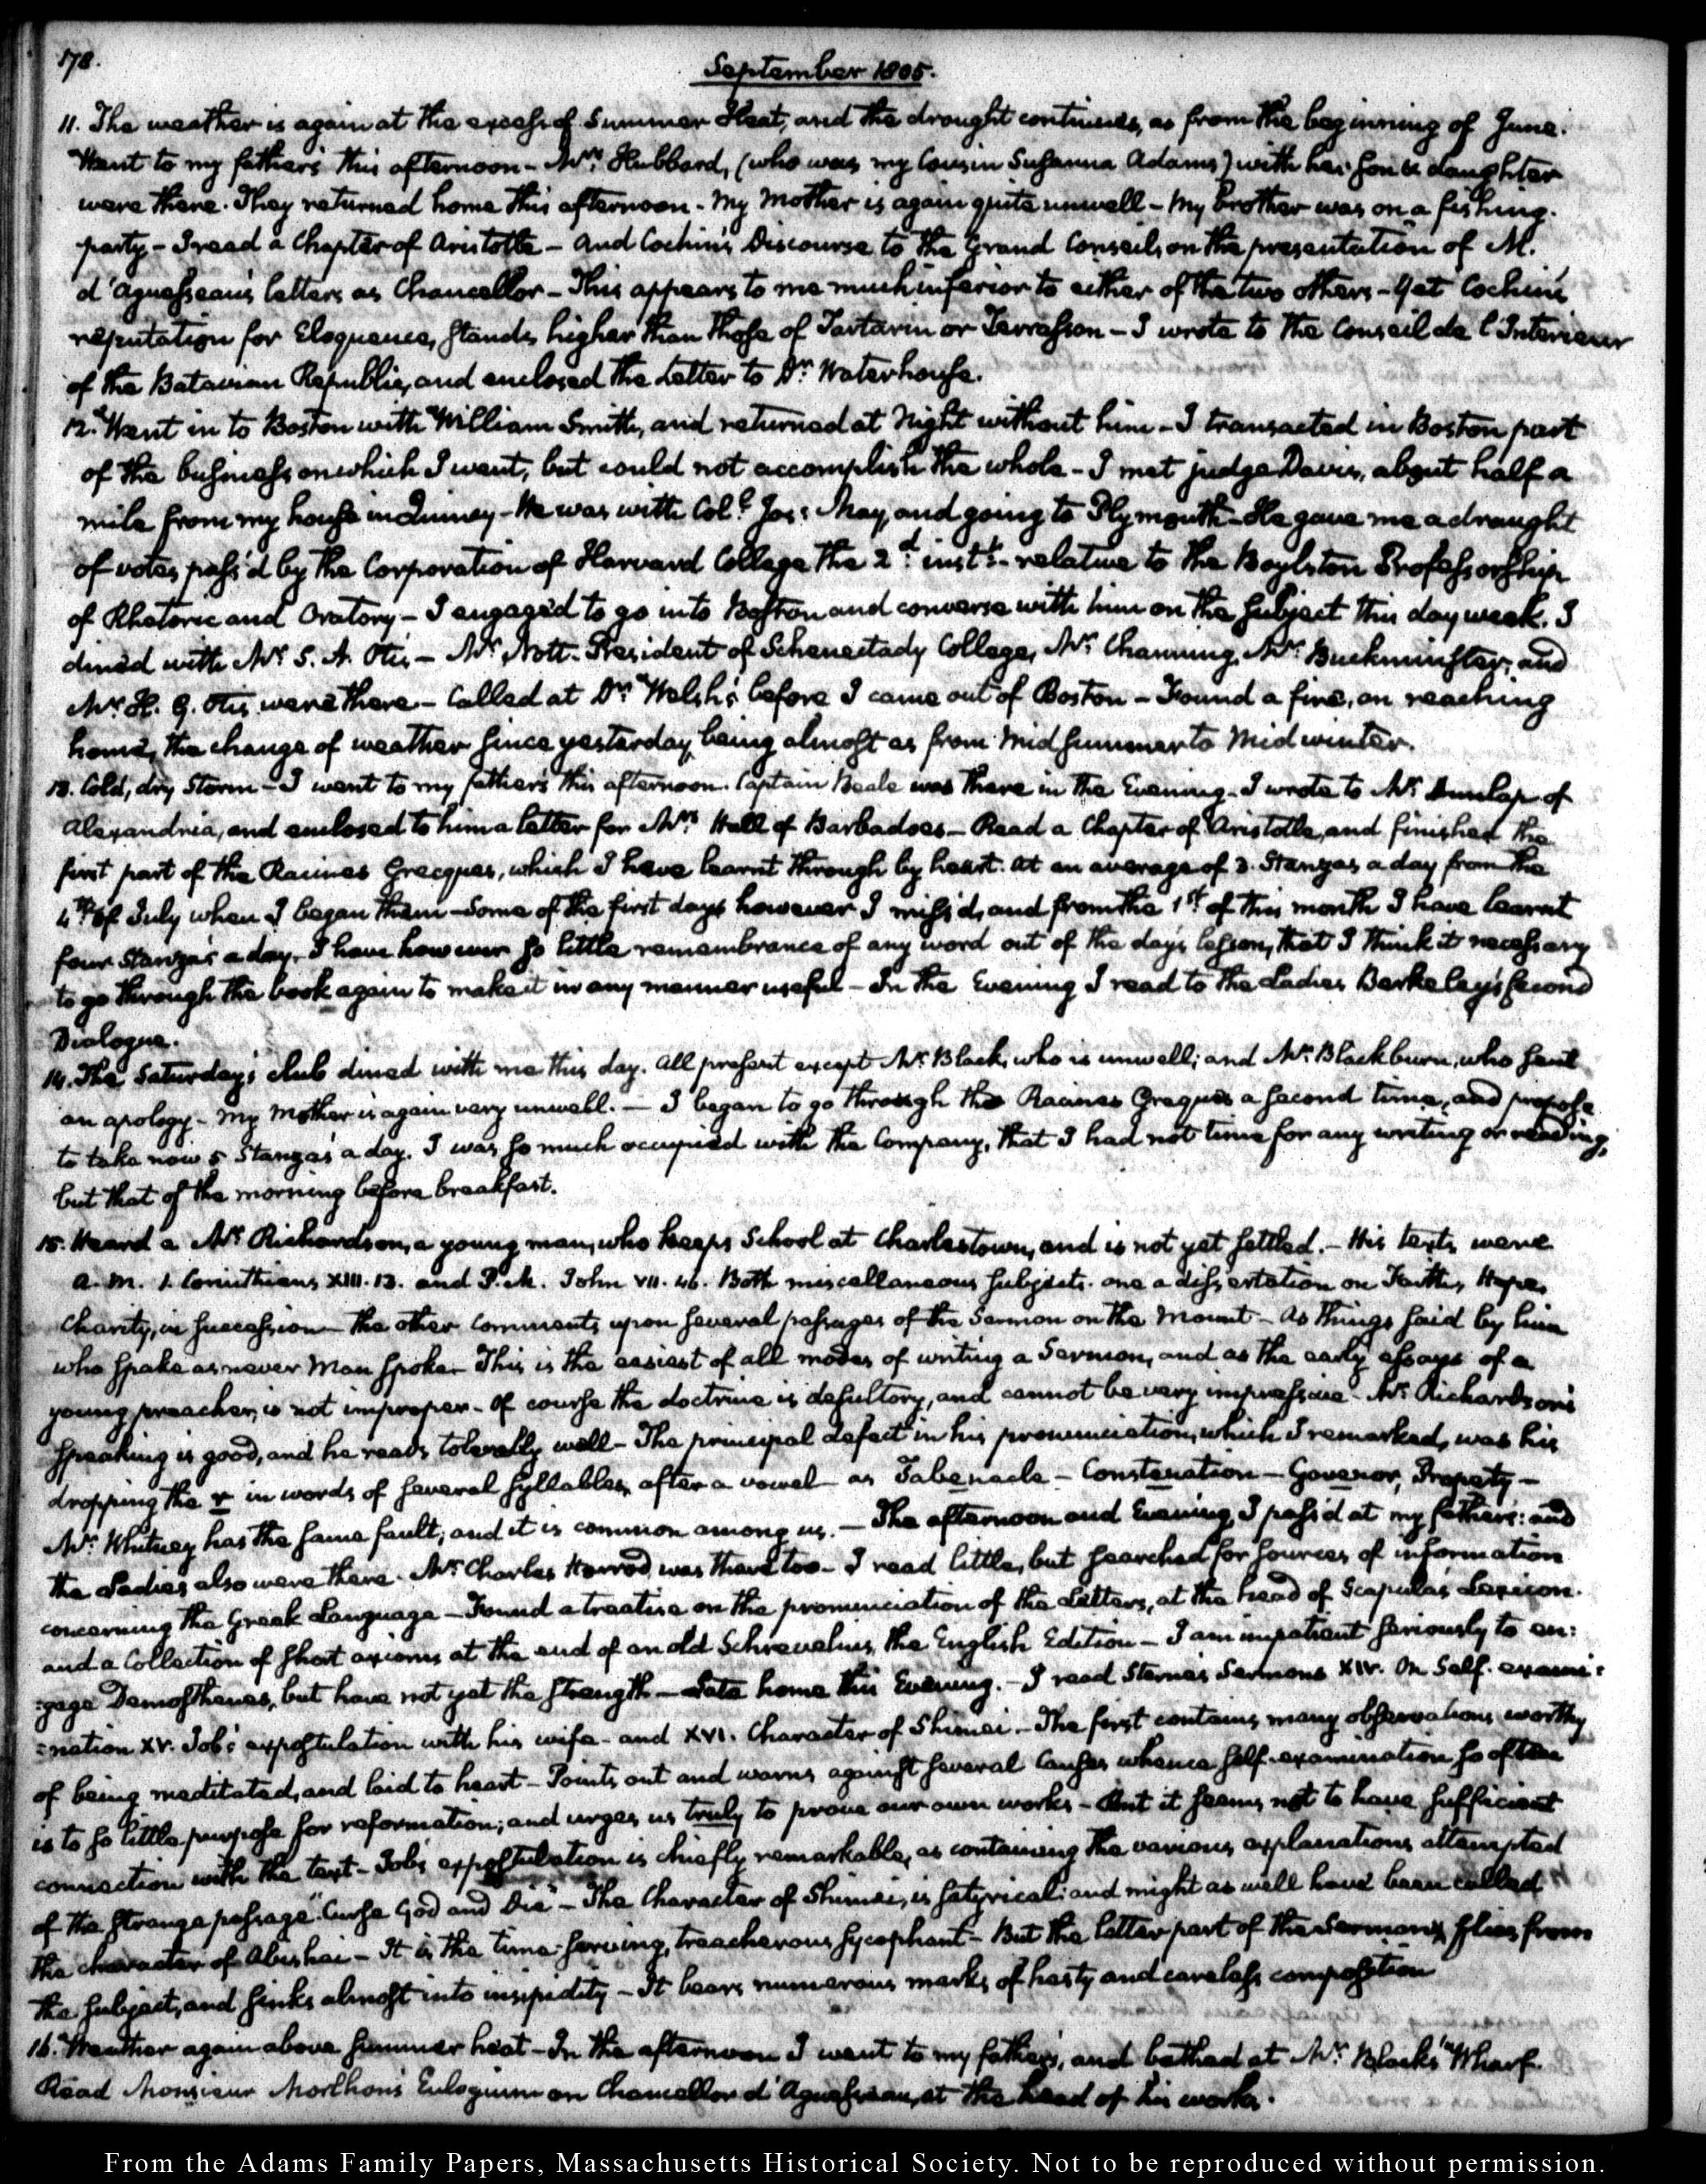 178.
September 1805.
11. The weather is again at the excess of Summer Heat, and the drought continues, as from the beginning of June.
Went to my father's this afternoon - Mrs. Hubbard, (who was my Cousin Susanna Adams) with her son & daughter
were there. They returned home this afternoon. My Mother is again quite unwell - My Brother was on a fishing.
party - I read a Chapter of Aristotle - And Cochin's Discourse to the Grand Conseil, on the presentation of M.
d'Aguesseau's letters as Chancellor - This appears to me much inferior to either of the two others - Yet Cochin's
reputation for Eloquence, stands higher than those of Tartarin or Terrasson - I wrote to the Conseil de l'Interieur
of the Batavian Republic, and enclosed the Letter to Dr. Waterhouse.
12. Went in to Boston with William Smith, and returned at Night without him - I transacted in Boston part
of the business on which I went, but could not accomplish the whole - I met judge Davis, about half a
mile from my house in Quincy - He was with Coll. Jos: May, and going to Plymouth - He gave me a draught
of votes pass'd by the Corporation of Harvard College the 2d. inst. - relative to the Boylston Professorship
of Rhetoric and Oratory - I engaged to go into Boston and converse with him on the subject this day week. I
dined with Mr. S. A. Otis - Mr. Nott. President of Schenectady College, Mr. Channing, Mr. Buckminster, and
Mr. H. G. Otis were there - Called at Dr. Welsh's before I came out of Boston - Found a fire, on reaching
home, the change of weather since yesterday, being almost as from Midsummer to Midwinter.
13. Cold, dry Storm - I went to my father's this afternoon. Captain Beale was there in the Evening - I wrote to Mr. Dunlap of
Alexandria, and enclosed to him a letter for Mrs. Hall of Barbadoes - Read a Chapter of Aristotle, and finished the
first part of the Racines Grecques, which I have learnt through by heart. At an average of 3. Stanzas a day from the
4th. of July when I began them - Some of the first days however I miss'd, and from the 1st. of this month I have learnt
four Stanza's a day. I have however so little remembrance of any word out of the day's lesson, that I think it necessary
to go through the book again to make it in any manner useful - In the Evening I read to the Ladies Berkeley's second
Dialogue.
14. The Saturday's club dined with me this day. All present except Mr. Black, who is unwell; and Mr. Blackburn, who sent
an apology - My Mother is again very unwell. - I began to go through the Racines Greques a second time, and propose
to take now 5 Stanza's a day. I was so much occupied with the Company, that I had not time for any writing or reading,
but that of the morning before breakfast.
15. Heard a Mr. Richardson, a young man, who keeps School at Charlestown, and is not yet settled. - His texts were
A. M. 1. Corinthians XIII. 13. and P. M. John VII. 46. Both miscellaneous subjects. one a dissertation on Faith, Hope,
Charity, in succession - the other Comments upon several passages of the Sermon on the Mount - As things said by him
who spake as never Man spoke - This is the easiest of all modes of writing a Sermon, and as the early essays of a
young preacher, is not improper - Of course the doctrine is desultory, and cannot be very impressive - Mr. Richardson's
speaking is good, and he reads tolerably well - The principal defect in his pronunciation, which I remarked, was his
dropping the r in words of several syllables, after a vowel - as Tabenacle - Constenation - Govenor, Propety -
Mr. Whitney has the same fault; and it is common among us. - The afternoon and Evening I pass'd at my father's: and
the Ladies also were there. Mr. Charles Harrod was there too - I read little, but searched for sources of information
concerning the Greek Language - Found a treatise on the pronunciation of the Letters, at the head of Scapula's Lexicon.
and a Collection of short axioms at the end of an old Schrevelius, the English Edition - I am impatient seriously to en:
:gage Demosthenes, but have not yet the strength - Late home this Evening. - I read Sterne's Sermons XIV. On Self-exami:
:nation XV. Job's expostulation with his wife - and XVI. Character of Shimei. - The first contains many observations worthy
of being meditated, and laid to heart - Points out and warns against several Causes whence self-examination so often
is to so little purpose for reformation; and urges us truly to prove our own works - But it seems not to have sufficient
connection with the text - Job's expostulation is chiefly remarkable, as containing the various explanations attempted
of the strange passage "Curse God and Die" - The Character of Shimei, is satyrical: and might as well have been called
the character of Abishai - It is the time-serving, treacherous sycophant - But the latter part of the Sermon flies from
the subject, and sinks almost into insipidity - It bears numerous marks of hasty and careless composition
16. Weather again above summer heat - In the afternoon I went to my father's, and bathed at Mr. Black's Wharf.
Read Monsieur Morlhon's Eulogium on Chancellor d'Aguesseau, at the head of his works.
From the Adams Family Papers, Massachusetts Historical Society. Not to be reproduced without permission.